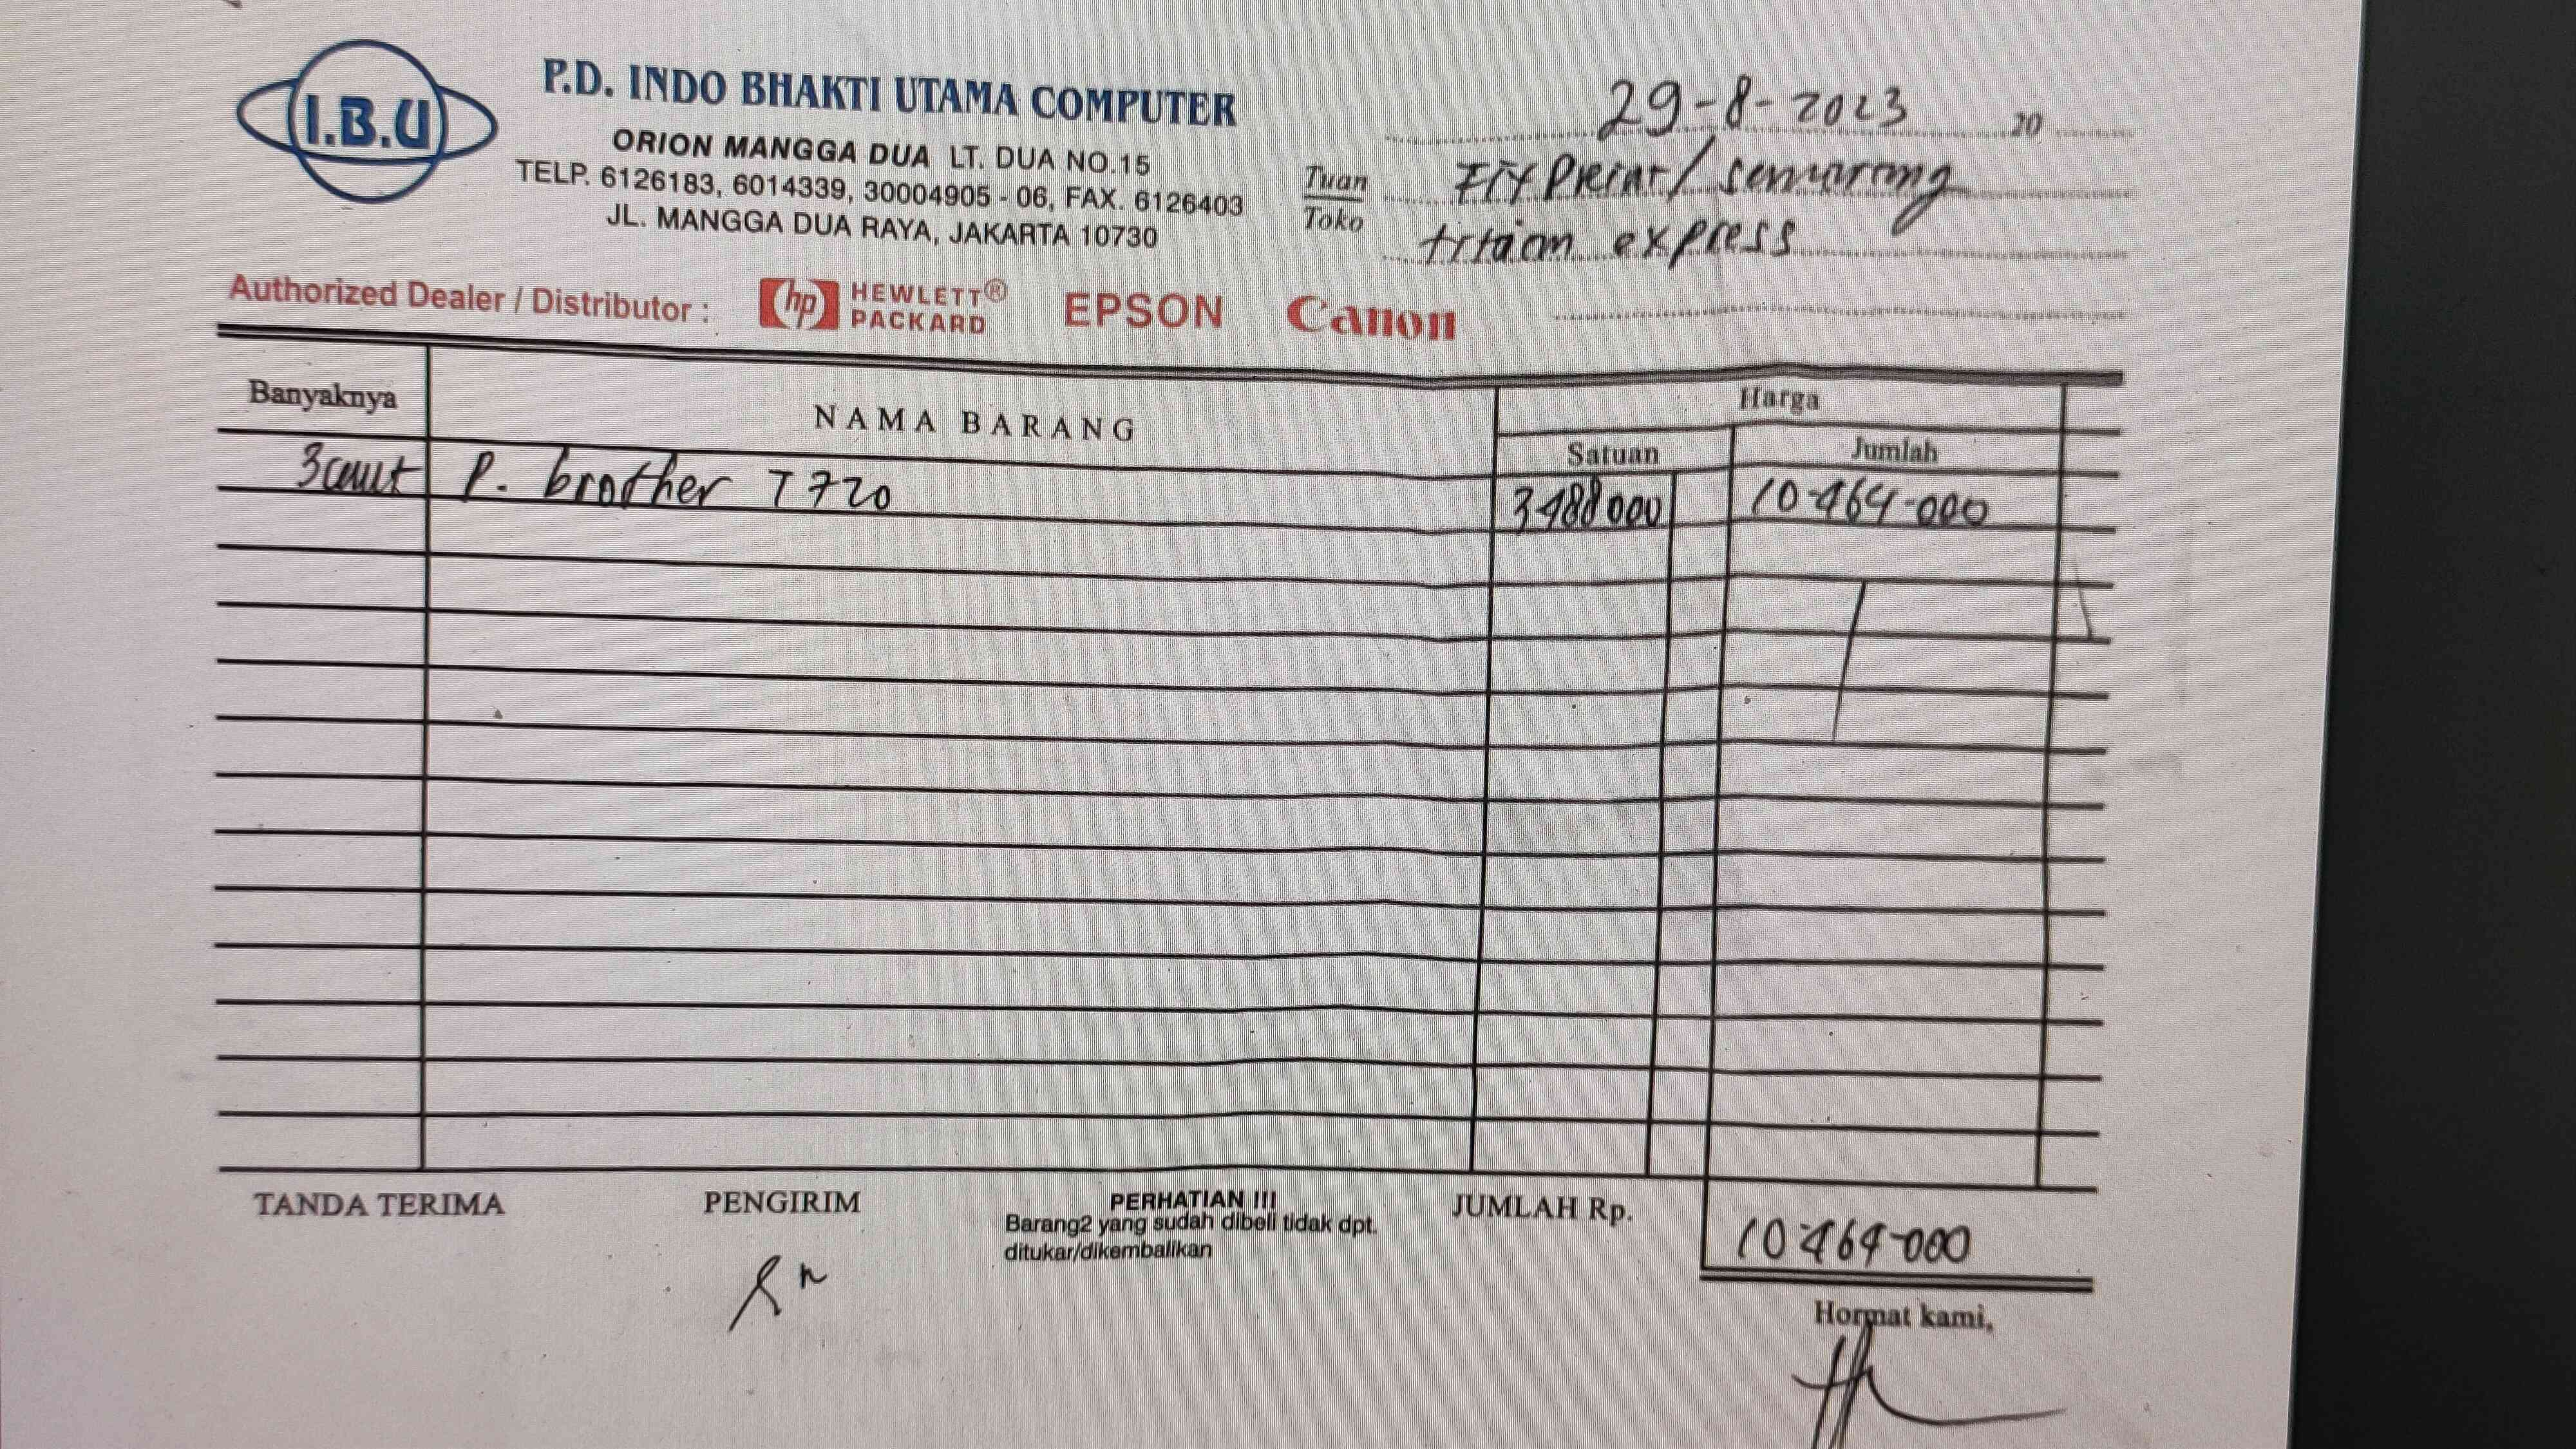 I.B.U
P.D. INDO BHAKTI UTAMA COMPUTER
ORION MANGGA DUA LT. DUA NO.15
TELP. 6126183, 6014339, 30004905 - 06, FAX. 6126403
JL. MANGGA DUA RAYA, JAKARTA 10730
29-8-2023 20
Tuan
Toko
/ Semarang
express
Authorized Dealer / Distributor : hp HEWLETT® PACKARD EPSON Canon
Banyaknya NAMA BARANG Harga
Satuan Jumlah
3 P. brother T720 3488000 10-464-000
TANDA TERIMA PENGIRIM
PERHATIAN !!!
Barang2 yang sudah dibeli tidak dpt.
ditukar/dikembalikan
JUMLAH Rp. 10-464-000
Hormat kami,